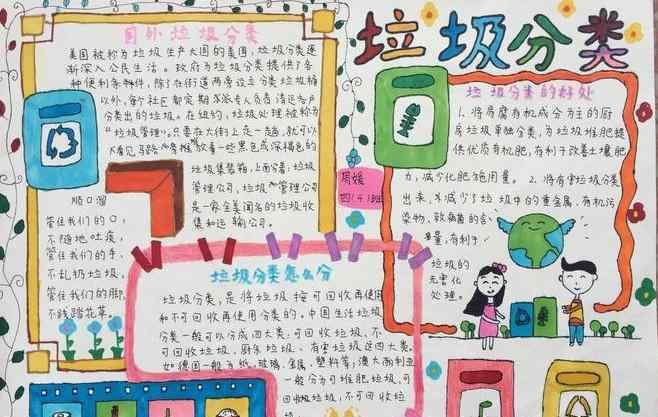 垃圾分类
国外垃圾分类
美国被称为垃圾生产大国的美国,垃圾分类逐
渐深入公民生活。政府为垃圾分类提供了各
种便利条件,除了在街道两旁设立分类垃圾桶
以外,每个社区都定期派专人负责清运各户
分类出的垃圾。在纽约,垃圾处理被称为
"垃圾管理"。只要在大街上走一走,就可以
看见马路旁堆放着一些黑色或深褐色的
垃圾集装箱,上面分着:垃圾
管理公司,垃圾管理公司
是一家全美闻名的垃圾收
集和运输公司。
顺口溜
管住我们的口,
不随地吐痰,
管住我们的手,
不乱扔垃圾,
管住我们的脚,
不践踏花草。
周媛
四(4)班
垃圾分类的好处
1.将易腐有机成分为主的厨
房垃圾单独分类,为垃圾堆肥提
供优质有机肥,有利于改善土壤肥
力,减少化肥施用量。2.将有害垃圾分类
出来,减少了垃圾中的重金属,有机污
染物,致病菌的含
量,有利于
垃圾的
无害化
处理。
垃圾分类怎么分
垃圾分类,是将垃圾按可回收再使用
和不可回收再使用分类的。中国生活垃圾
分类一般可以分成四大类:可回收垃圾、不
可回收垃圾、厨余垃圾、有害垃圾这四大类。
如德国一般为纸、玻璃、金属、塑料等;澳大利亚
一般分为可堆肥垃圾,可
回收垃圾,不可回收垃